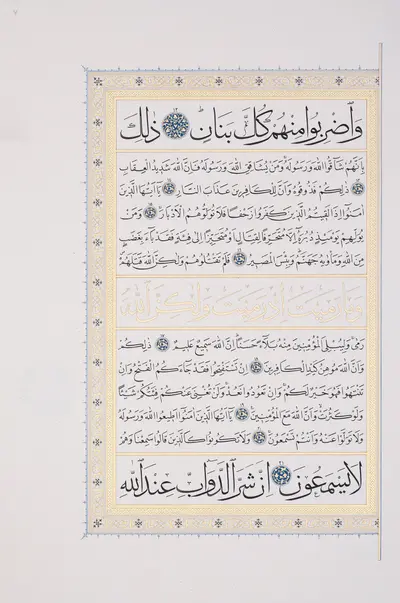 ٧
وَاضْرِبُوا مِنْهُمْ كُلَّ بَنَانٍ ۱۲ ذَلِكَ
بِأَنَّهُمْ شَاقُّوا اللهَ وَرَسُولَهُ وَمَنْ يُشَاقِقِ اللهَ وَرَسُولَهُ فَإِنَّ اللهَ شَدِيدُ الْعِقَابِ
ذَلِكُمْ فَذُوقُوهُ وَأَنَّ لِلْكَافِرِينَ عَذَابَ النَّارِ يَا أَيُّهَا الَّذِينَ
آمَنُوا إِذَا لَقِيتُمُ الَّذِينَ كَفَرُوا زَحْفًا فَلَا تُوَلُّوهُمُ الْأَدْبَارَ وَمَنْ
يُوَلِّهِمْ يَوْمَئِذٍ دُبُرَهُ إِلَّا مُتَحَرِّفًا لِقِتَالٍ أَوْ مُتَحَيِّزًا إِلَى فِئَةٍ فَقَدْ بَاءَ بِغَضَبٍ
مِنَ اللهِ وَمَأْوَاهُ جَهَنَّمُ وَبِئْسَ الْمَصِيرُ فَلَمْ تَقْتُلُوهُمْ وَلَكِنَّ اللهَ قَتَلَهُمْ
وَمَا رَمَيْتَ إِذْ رَمَيْتَ وَلَكِنَّ اللهَ
رَمَى وَلِيُبْلِيَ الْمُؤْمِنِينَ مِنْهُ بَلَاءً حَسَنًا إِنَّ اللهَ سَمِيعٌ عَلِيمٌ ذَلِكُمْ
وَأَنَّ اللهَ مُوهِنُ كَيْدِ الْكَافِرِينَ إِنْ تَسْتَفْتِحُوا فَقَدْ جَاءَكُمُ الْفَتْحُ وَإِنْ
تَنْتَهُوا فَهُوَ خَيْرٌ لَكُمْ وَإِنْ تَعُودُوا نَعُدْ وَلَنْ تُغْنِيَ عَنْكُمْ فِئَتُكُمْ شَيْئًا
وَلَوْ كَثُرَتْ وَأَنَّ اللهَ مَعَ الْمُؤْمِنِينَ يَا أَيُّهَا الَّذِينَ آمَنُوا أَطِيعُوا اللهَ وَرَسُولَهُ
وَلَا تَوَلَّوْا عَنْهُ وَأَنْتُمْ تَسْمَعُونَ وَلَا تَكُونُوا كَالَّذِينَ قَالُوا سَمِعْنَا وَهُمْ
لَا يَسْمَعُونَ إِنَّ شَرَّ الدَّوَابِّ عِنْدَ اللهِ